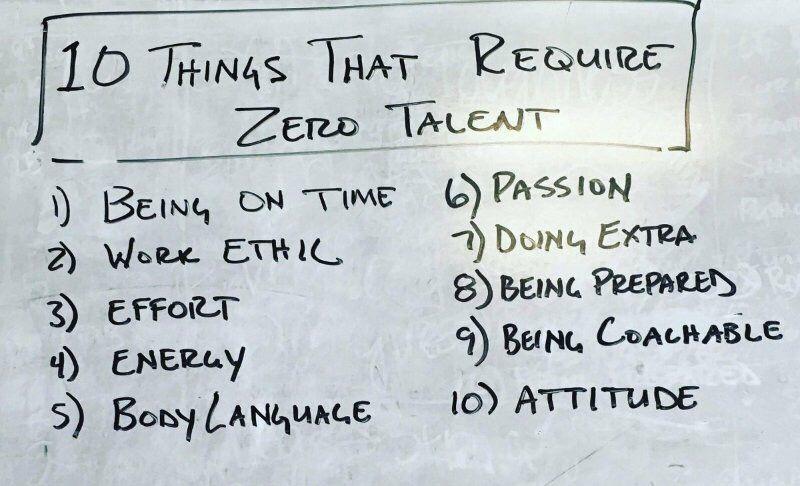 10 THINGS THAT REQUIRE
ZERO TALENT
1) BEING ON TIME
2) WORK ETHIC
3) EFFORT
4) ENERGY
5) BODY LANGUAGE
6) PASSION
7) DOING EXTRA
8) BEING PREPARED
9) BEING COACHABLE
10) ATTITUDE